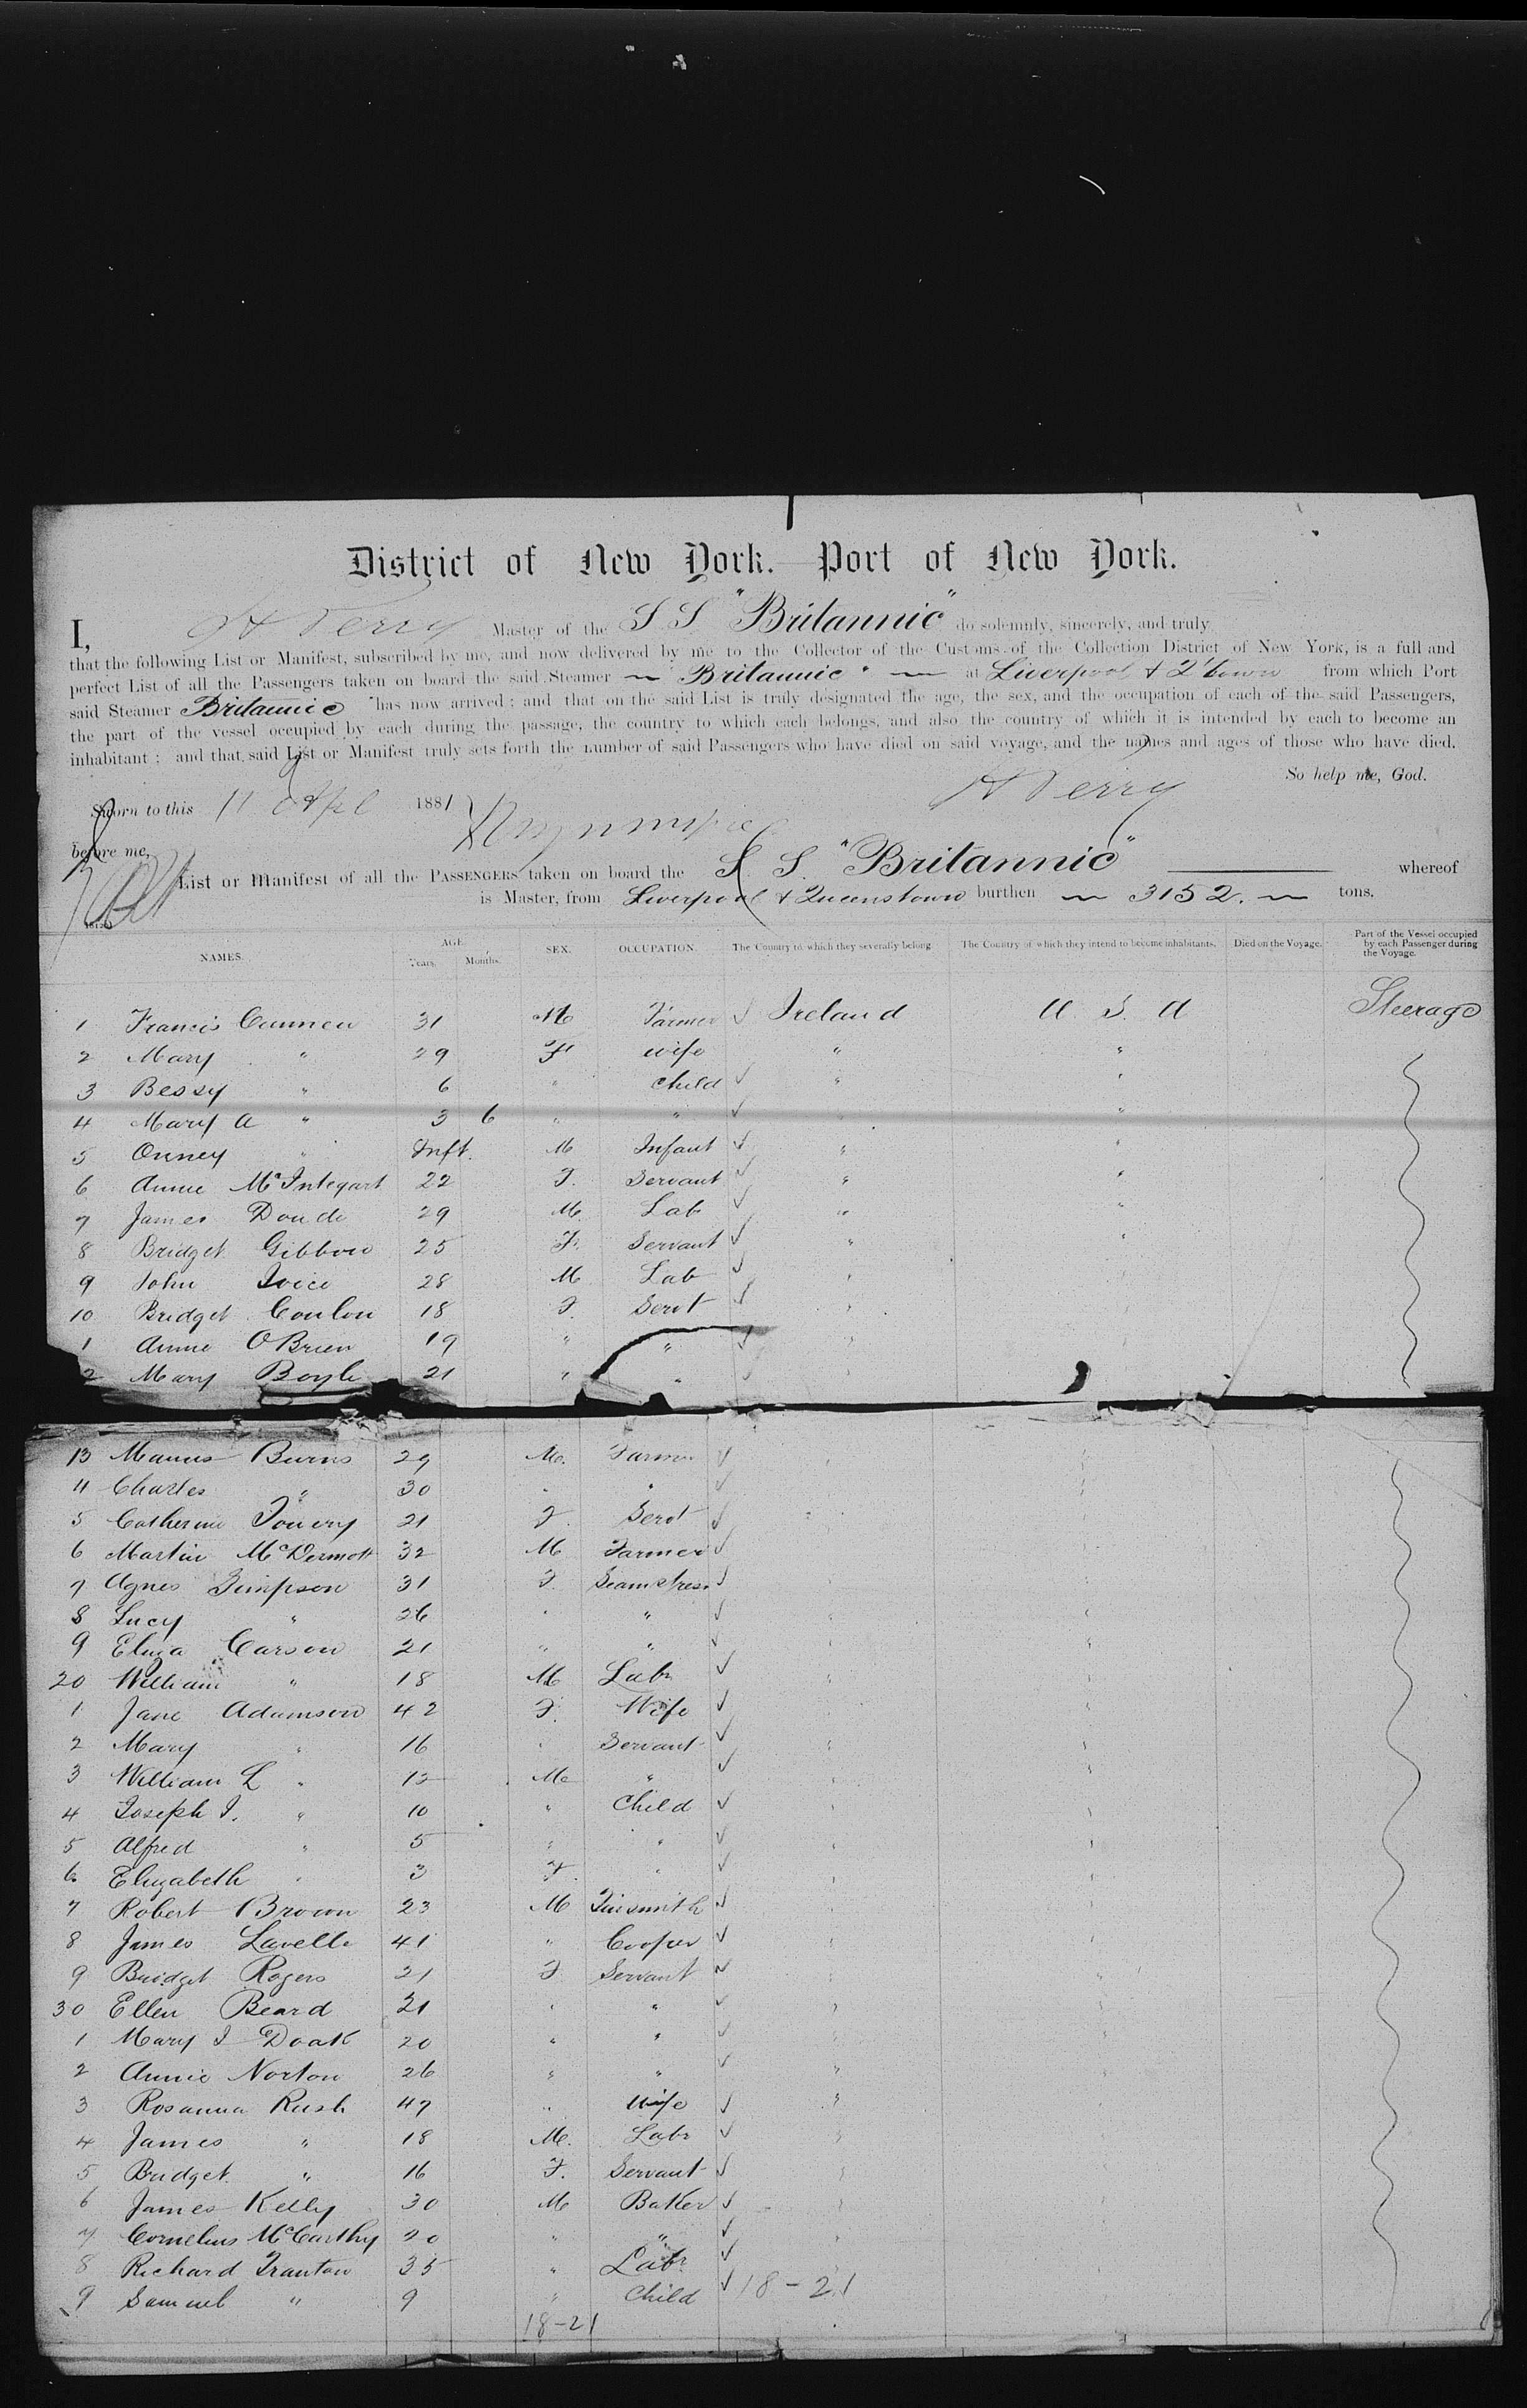 District of New York. Port of New York.
I, H Perry Master of the S S "Britannic" do solemnly, sincerely, and truly
that the following List or Manifest, subscribed by me, and now delivered by me to the Collector of the Customs of the Collection District of New York, is a full and
perfect List of all the Passengers taken on board the said Steamer Britannic " at Liverpool & Q'town from which Port
said Steamer Britannic has now arrived; and that on the said List is truly designated the age, the sex, and the occupation of each of the said Passengers,
the part of the vessel occupied by each during the passage, the country to which each belongs, and also the country of which it is intended by each to become an
inhabitant; and that said List or Manifest truly sets forth the number of said Passengers who have died on said voyage, and the names and ages of those who have died.
So help me, God.
Sworn to this 11 Apl 1881 H Perry
before me,
List or Manifest of all the PASSENGERS taken on board the S S. "Britannic" whereof
is Master, from Liverpool & Queenstown burthen 3152. tons.
NAMES. AGE. Years. Months. SEX. OCCUPATION. The Country to which they severally belong. The Country of which they intend to become inhabitants. Died on the Voyage. Part of the Vessel occupied by each Passenger during the Voyage.
1 Francis Cannen 31 M Farmer ✓ Ireland U. S. A Steerage
2 Mary " 29 F wife " "
3 Bessy " 6 " child ✓ " "
4 Mary A " 3 6 " " ✓ "
5 Onney " Inft. M Infant ✓ " "
6 Annie McIntegart 22 F. Servant ✓ " "
7 James Doude 29 M. Lab ✓ " "
8 Bridget Gibbon 25 F. Servant ✓ " "
9 John Joice 28 M Lab ✓ "
10 Bridget Conlon 18 F. Servt ✓ "
1 Annie O'Brien 19 " " ✓ "
2 Mary Boyle 21 " " ✓ "
13 Manus Burns 29 M. Farmer ✓ "
4 Charles " 30 " " ✓
5 Catherine 21 F. Servt ✓ "
6 Martin McDermott 32 M Farmer ✓
7 Agnes Simpson 31 F Seamstress ✓
8 Lucy " 26 " " ✓ "
9 Eliza Carson 21 " " ✓ "
20 William " 18 M Labr ✓ "
1 Jane Adamson 42 F. Wife ✓ "
2 Mary " 16 " Servant ✓ "
3 William L " 12 M " ✓ "
4 Joseph I. " 10 " Child ✓ "
5 Alfred " 5 " " ✓ "
6 Elizabeth " 3 F. " ✓ "
7 Robert Brown 23 M Tinsmith ✓ "
8 James Lavelle 41 " Cooper ✓ "
9 Bridget Rogers 21 F Servant ✓ "
30 Ellen Beard 21 " " ✓ "
1 Mary J Doak 20 " " ✓ "
2 Annie Norton 26 " " ✓ "
3 Rosanna Rush 47 " Wife ✓ "
4 James " 18 M. Labr ✓ "
5 Bridget " 16 F. Servant ✓ "
6 James Kelly 30 M Baker ✓ "
7 Cornelius McCarthy 20 " " ✓ "
8 Richard Tranton 35 " Labr ✓
9 Samuel " 9 " Child ✓ 18-21
18-21